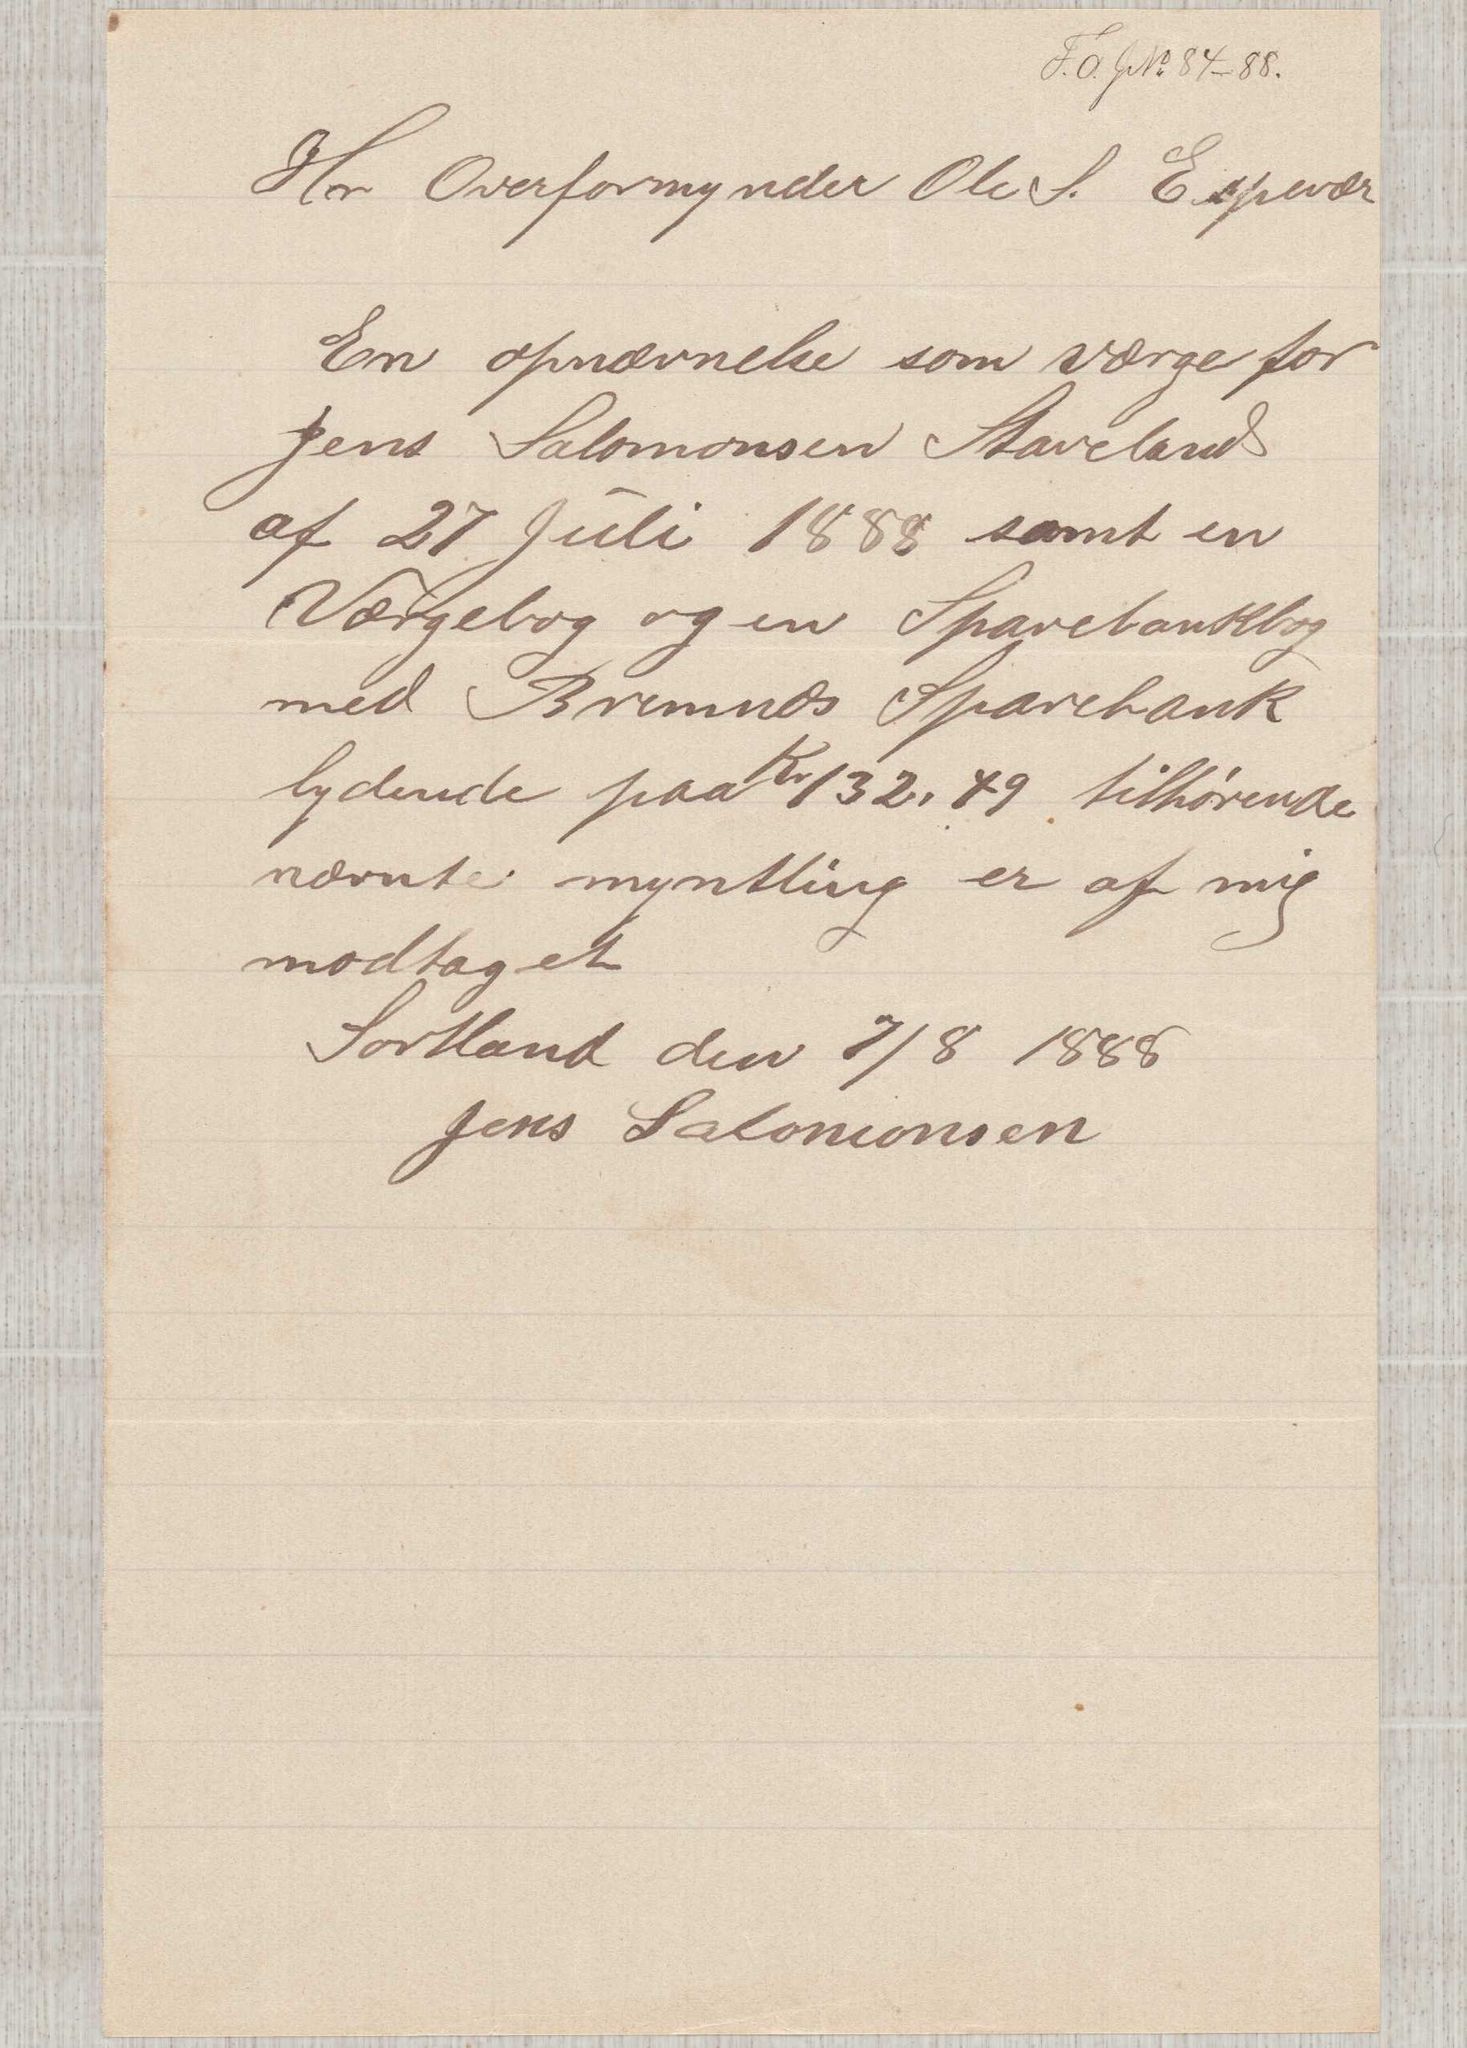 F. O. J No 84-88.
Hr Overformynder Ole S. Espevær
En opnævnelse som værge for
Jens Salomonsen Staveland
af 27 Juli 1888 samt en
Værgebog og en Sparebankbog
med Bremnæs Sparebank
lydende paa Kr 132,49 tilhørende
nævnte myntling er af mig
modtaget
Sortland den 7/8 1888
Jens Salomonsen